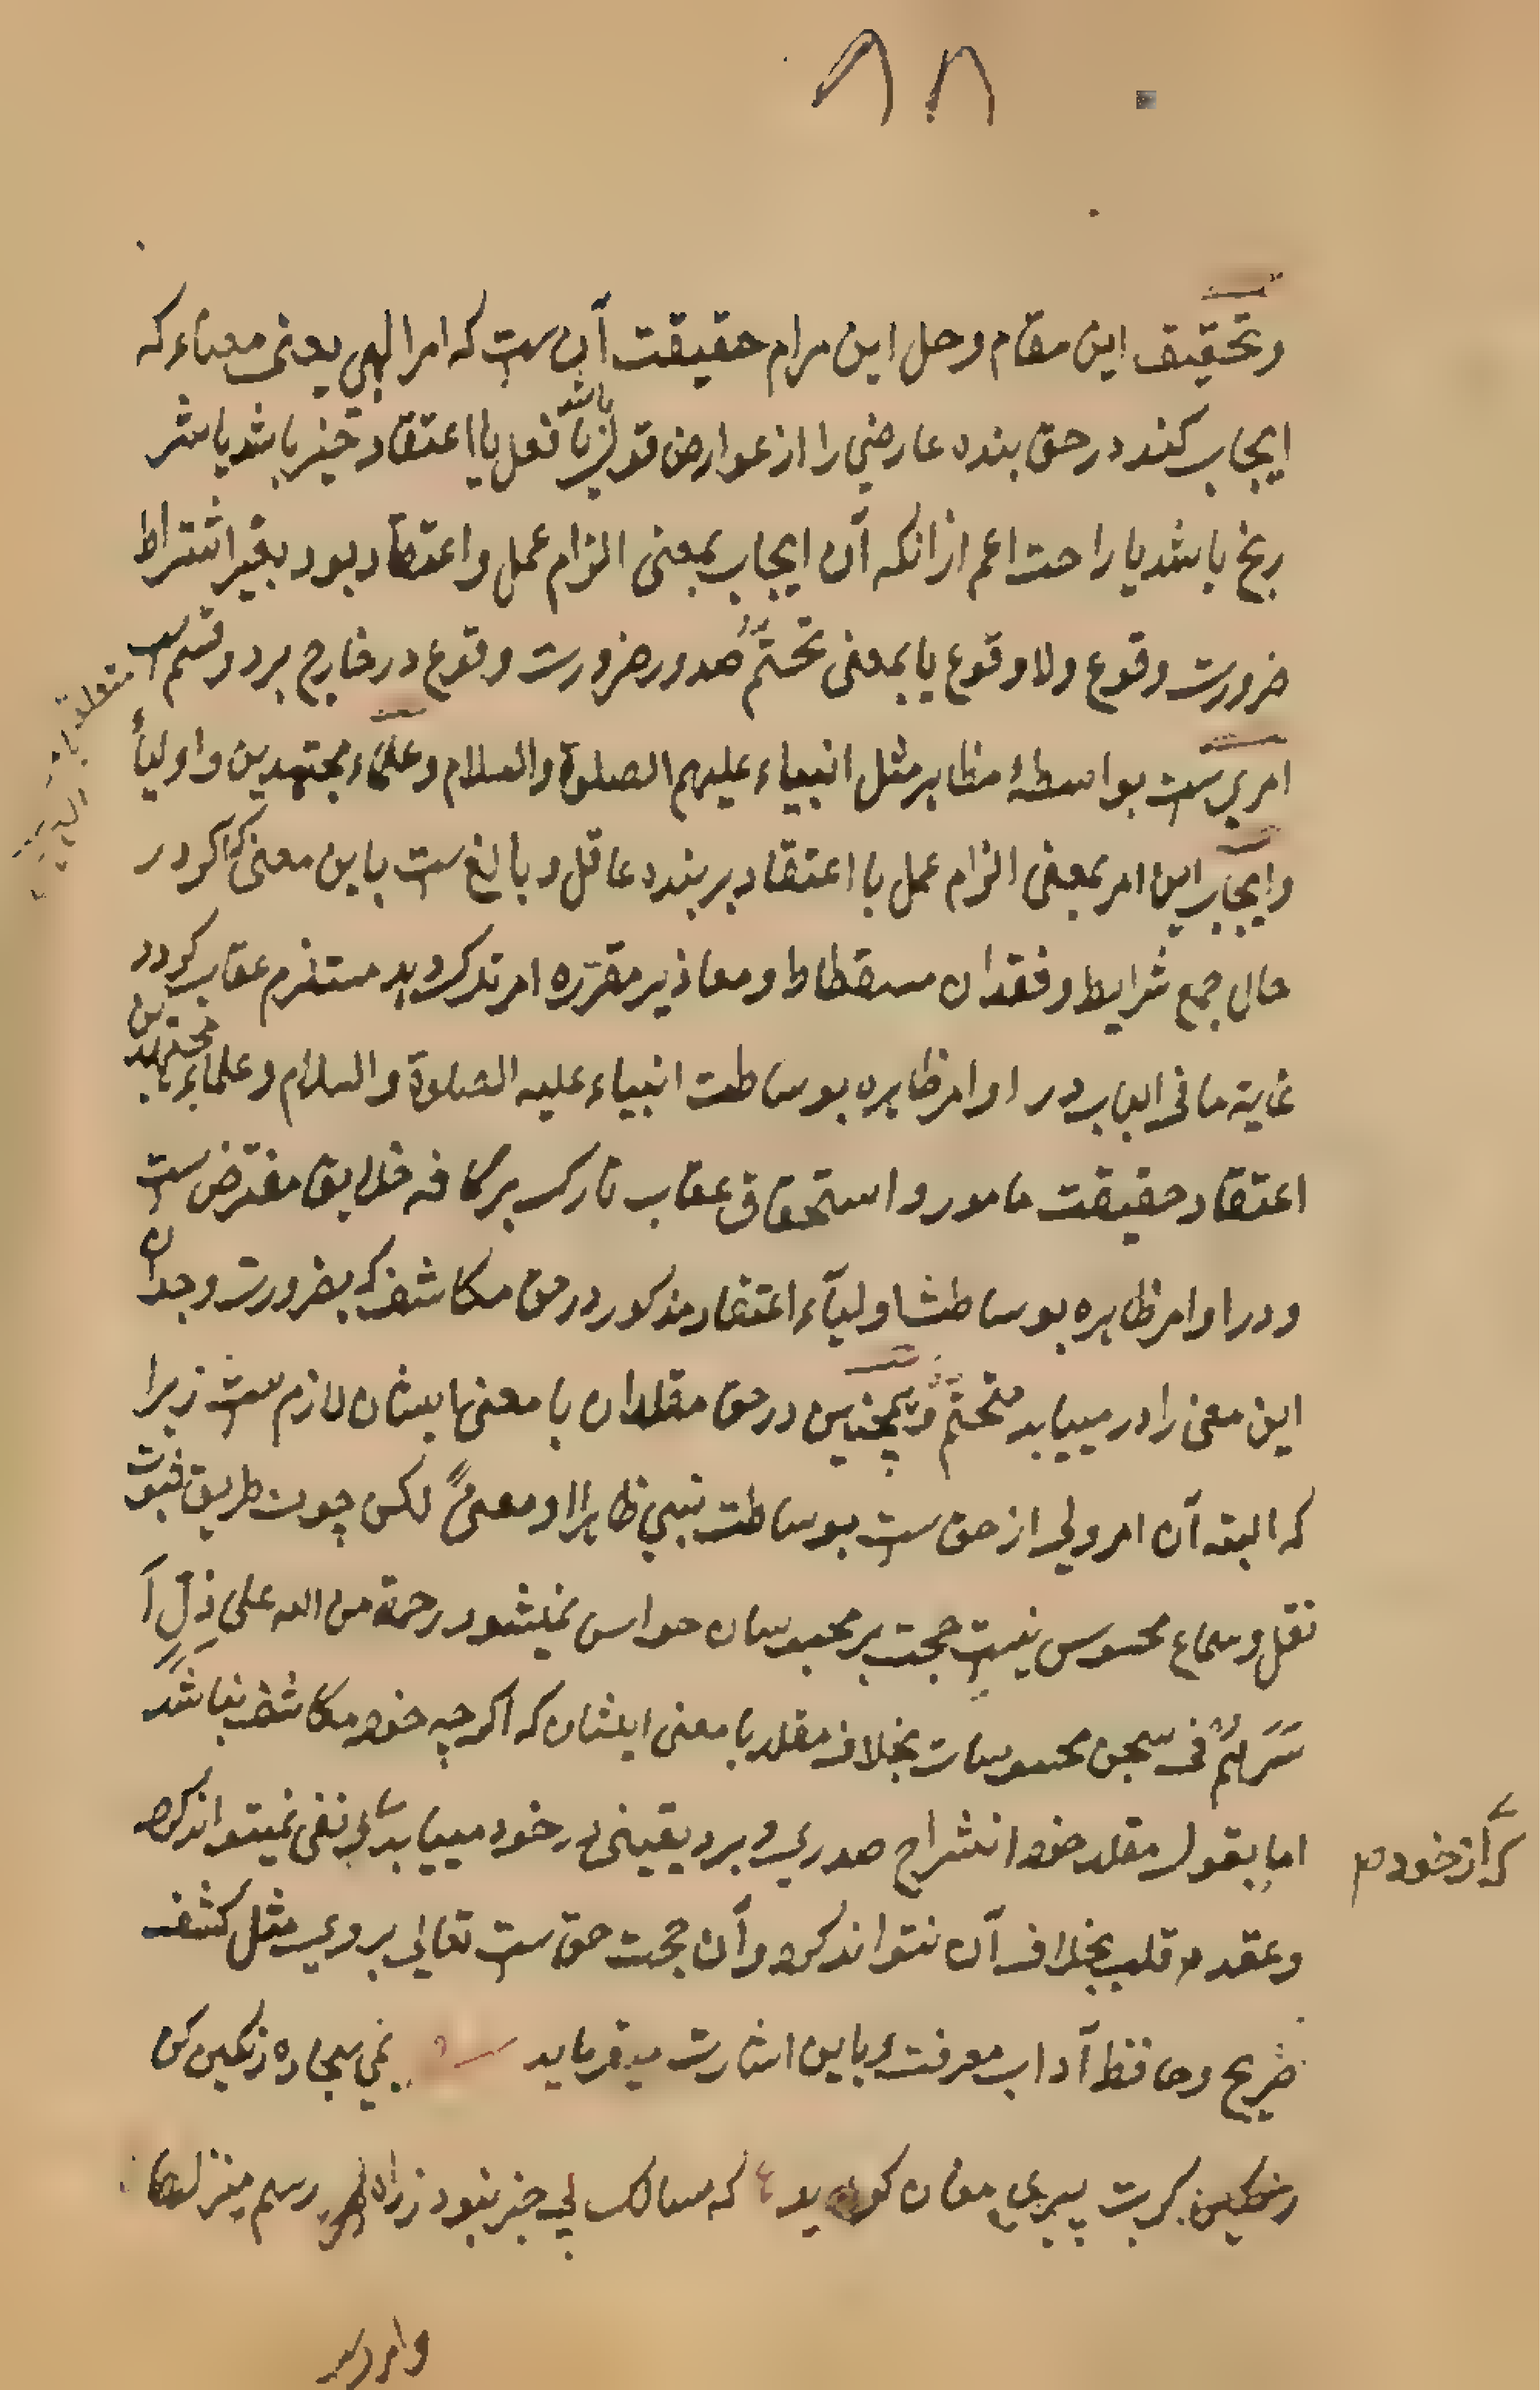 ۹۸
وتحقیق این مقام وحل این مرام حقیقت آن ست که امر الهی یعنی معناء که
ایجاب کند در حق بنده عارضی را از عوارض قول باشد یا فعل یا اعتقاد خیر باشد یا شر
رنج باشد یا راحت اعم ازانکه آن ایجاب بمعنی الزام عمل و اعتقاد بود بغیر اشتراط
ضرورت وقوع ولا وقوع یا بمعنی تحتّم صدور ضرورت وقوع در خارج بر دو قسم ست
امری ست بواسطهٔ مظاهر مثل انبیاء علیهم الصلوة والسلام وعلماء مجتهدین و اولیاء
وایجاب این امر بمعنی الزام عمل یا اعتقاد بر بنده عاقل و بالغ ست باین معنی که اکر در
حال جمع شرایط و فقدان مسقطاط و معاذیر مقرّره امر ترک روید مستلزم عقاب کردد
غایة ما فی الباب در اوامر ظاهره بوساطت انبیاء علیه الصلوة والسلام وعلماء مجتهدین
اعتقاد حقیقت مامور و استحقاق عقاب تارک بر کافه خلایق مفترض ست
و در اوامر ظاهره بوساطت اولیآء اعتقاد مذکور در حق مکاشف که بضرورت وجدان
این معنی را در مییابد متحتّم و همچنین در حق مقلدان با معنی ایشان لازم ست زیرا
که البته آن امر ولی از حق ست بوساطت نبی ظاهرا او معنیً لکن چون طریق ثبوت
نقل و سماع محسوس نیست حجت بر محبوسان حواس نمیشود رحمة من الله علی
فی سجن محسوسات بخلاف مقلد با معنی ایشان که اکرچه خود مکاشف نباشد
اما بقول مقلد خود انشراح صدری و برد یقینی در خود مییابد که نفی نمیتواند کرد
که آن از خود م
وعقد قلب بخلاف آن نتواند کرد وآن حجت حق ست تعالی بروی مثل کشف
صریح وحافظ آداب معرفت باین اشارت میفرماید بمی سجاده رنکین کن
رنکین کرت پیری مغان کوید که سالک بی خبر نبود ز راه رسم منزلها
متعلق